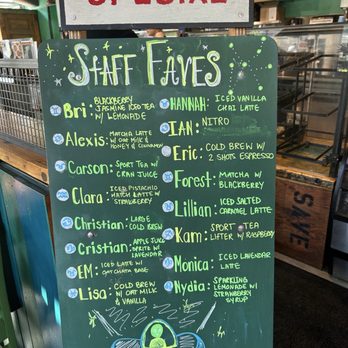 SPECIAL
STAFF FAVES
Bri: BLACKBERRY
JASMINE ICED TEA
W/ LEMONADE
Alexis: MATCHA LATTE
W/ OAT MILK &
HONEY &
Carson: SPORT TEA W/
CRAN JUICE
Clara: ICED PISTACHIO
MATCH LATTE W/
STRAWBERRY
Christian: LARGE
COLD BREW
Cristian: APPLE JUICE
SPRITZ W/
LAVENDAR
EM: ICED LATTE W/
OAT CHATA BASE
Lisa: COLD BREW
W/ OAT MILK
& VANILLA
HANNAH: ICED VANILLA
CHAI LATTE
IAN: NITRO
Eric: COLD BREW W/
2 SHOTS ESPRESSO
Forest: MATCHA W/
BLACKBERRY
Lillian: ICED SALTED
CARAMEL LATTE
Kam: SPORT TEA
LIFTER W/ RASPBERRY
Monica: ICED LAVENDAR
LATTE
Nydia: SPARKLING
LEMONADE W/
STRAWBERRY
SYRUP
SAVE